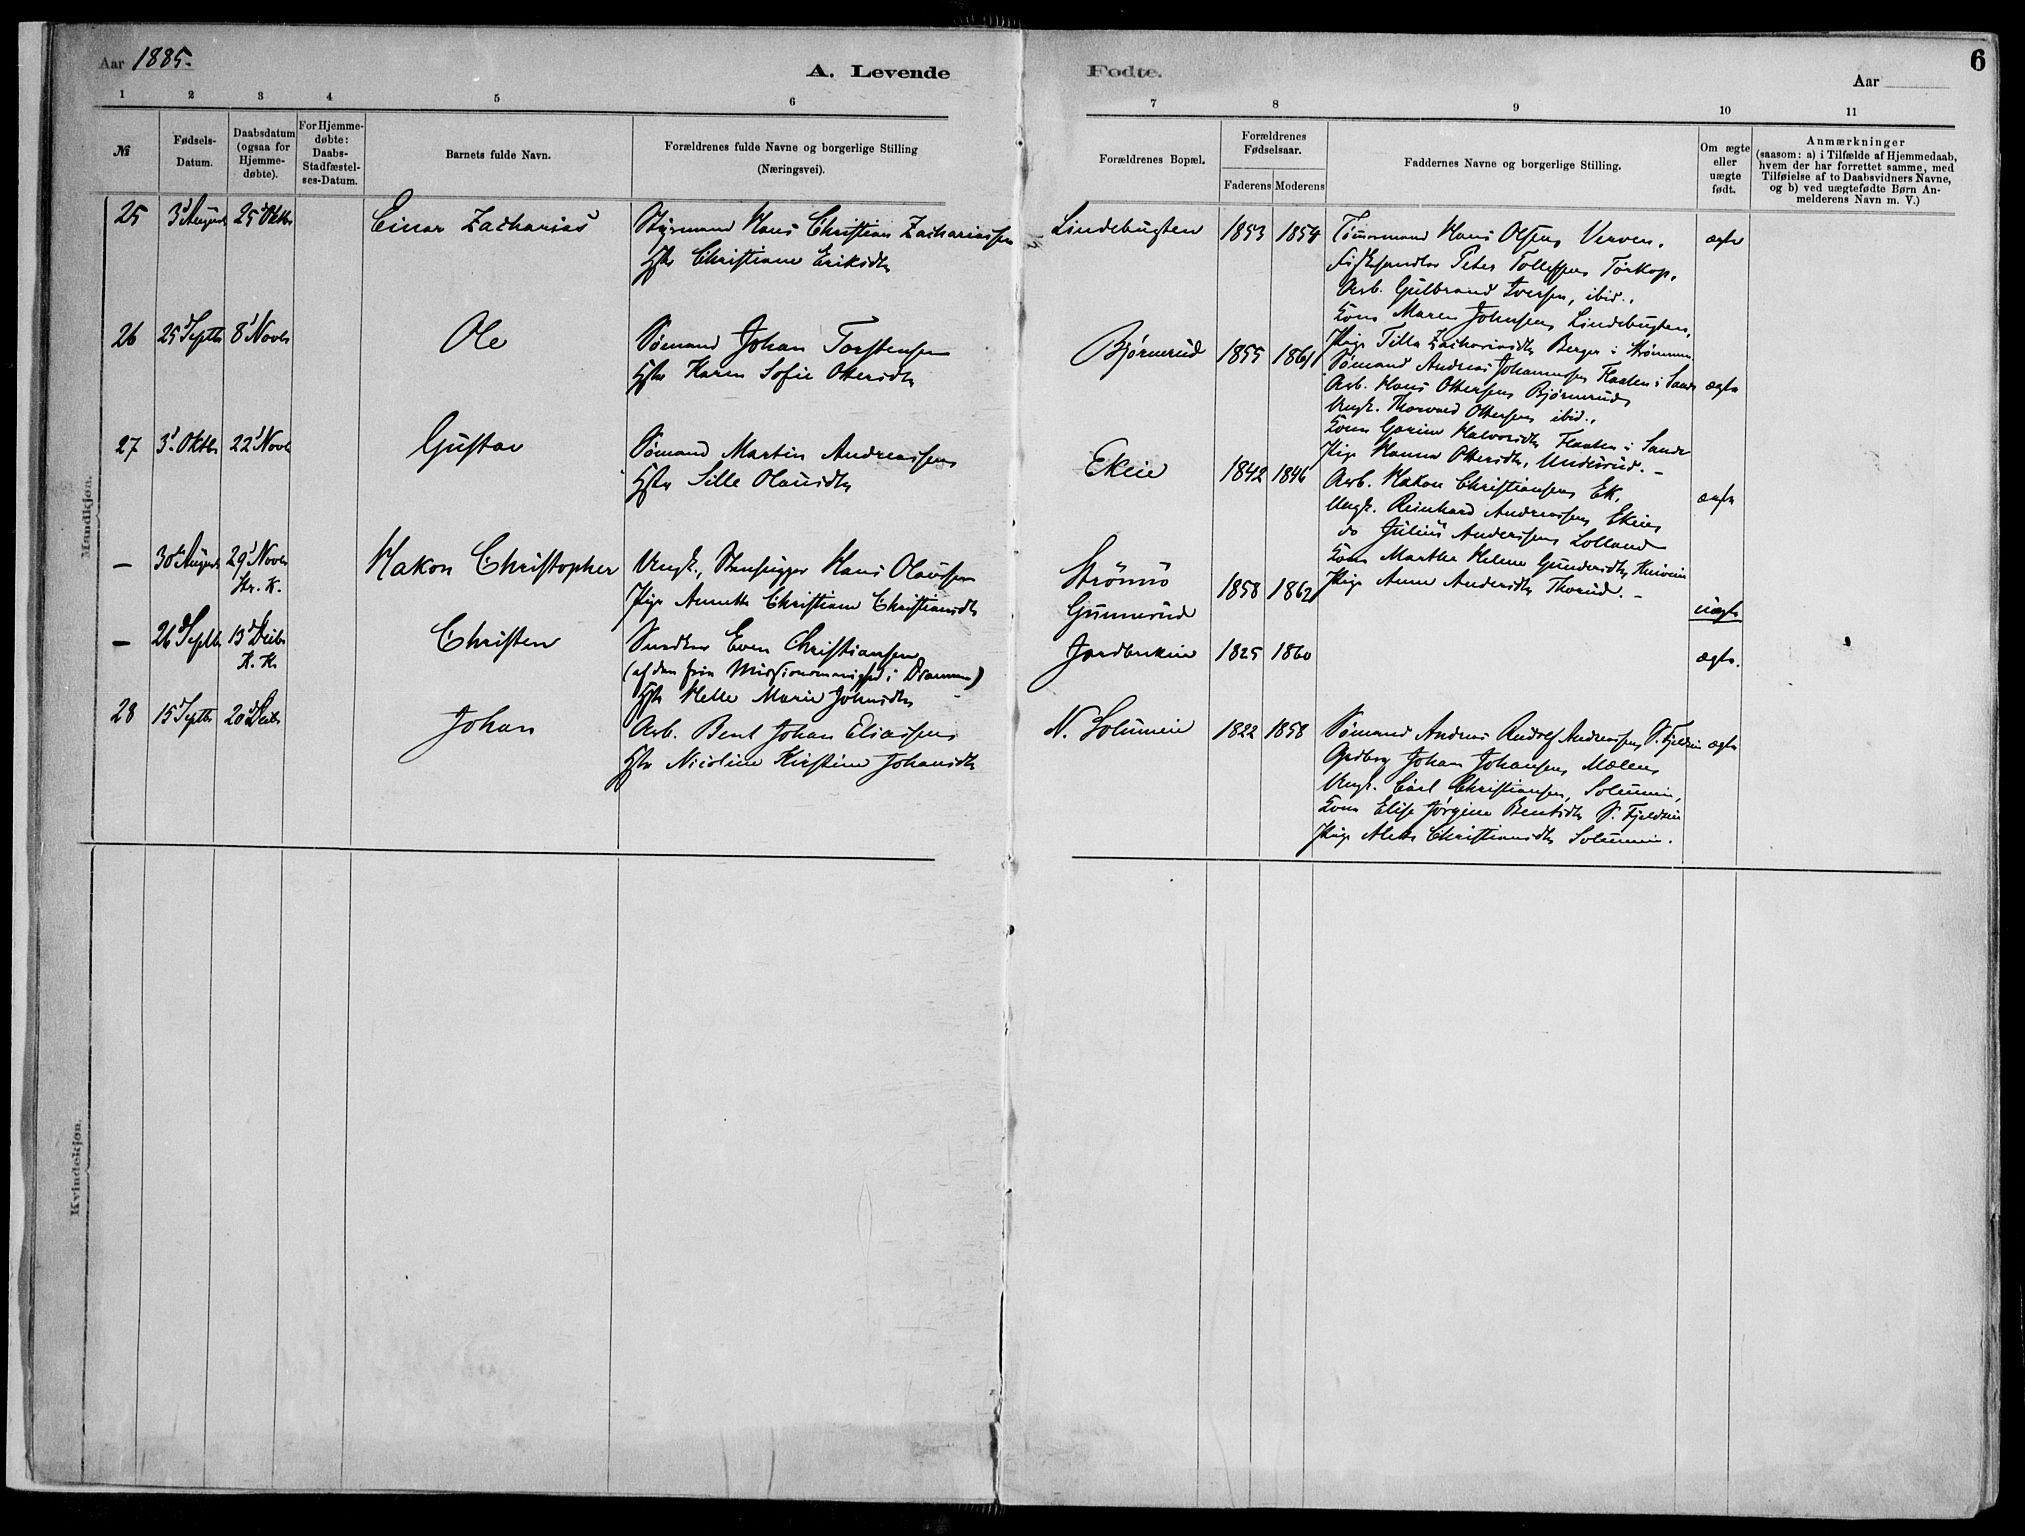 Aar 1885.
A. Levende
Fødte.
Aar
6
1 2 3 4 5 6 7 8 9 10 11
№
Fødsels-
Datum.
Daabsdatum
(ogsaa for
Hjemme-
døbte).
For Hjemme-
døbte:
Daabs-
Stadfæstel-
ses-Datum.
Barnets fulde Navn.
Forældrenes fulde Navne og borgerlige Stilling
(Næringsvei).
Forældrenes Bopæl.
Forældrenes
Fødselsaar.
Faderens Moderens
Faddernes Navne og borgerlige Stilling.
Om ægte
eller
uægte
født.
Anmærkninger
(saasom: a) i Tilfælde af Hjemmedaab,
hvem der har forrettet samme, med
Tilføielse af to Daabsvidners Navne,
og b) ved uægtefødte Børn An-
melderens Navn m. V.)
Mandkjøn.
25 3d August 25d Oktbr Einar Zacharias
Styrmand Hans Christian Zachariassen
Hstr Christiane Eriksdtr
Lindebugten 1853 1854
Tømmermand Hans Olsen, Verven,
Fiskehandler Peter Tollefsen Torkop,
Arb. Gulbrand Iversen, ibid.,
Kone Maren Johnsen, Lindebugten,
Pige Tilla Zachariasdtr Berger i Strømmen
ægte
26 25d Septbr 8d Novbr Ole
Sømand Johan Torstensen
Hstr Karen Sofie Ottersdtr
Bjørnerud 1855 1861
Sømand Andreas Johannesen Haaten i Sande
Arb. Hans Ottersen, Bjørnerud,
Ungk. Thorvald Ottersen ibid.,
Kone Halvorsdtr i Sande
Pige Hanna Ottersdtr, Underrud. –
ægte
27 3d Oktbr 22d Novbr Gustav
Sømand Martin Andreassen
Hstr Sille Olausdtr
Ekeie 1842 1846
Arb. Hakon Christiansen Ek,
Ungk. Reinhard Andreassen, Ekeie
do Julius Anderssen Lolland
Kone Marthe Helene Gundersdtr,
Pige Anne Andersdtr Thorud. –
ægte
– 30d August 29d Novbr Hakon Christopher
Kr. K.
Ungk., Stenhugger Hans Olaussen
Pige Annette Christiane Christiansdtr
Strømø
Gunnerud 1858 1862
uægte
– 26d Septbr 13d Decbr Christen
K. K.
Snedker Even Christiansen
(af den frie Missionsmenighed i Drammen)
Hstr Helle Marie Johnsdtr
Jordbrekeie 1825 1860 ægte.
28 15d Septbr 20d Decbr Johan
Arb. Bent Johan Eliassen
Hstr Nicoline Kirstine Johansdtr
N. Solumeie 1822 1858
Sømand Andreas Rudolf Andreassen, S. Fjeldeie
Johan Johansen, Mælen,
Ungk. Carl Christiansen, Solumeie,
Kone Elise Jørgine Bentsdtr S. Fjeldeie
Pige Alette Christiansdtr Solumeie.
ægte
Kvindekjøn.